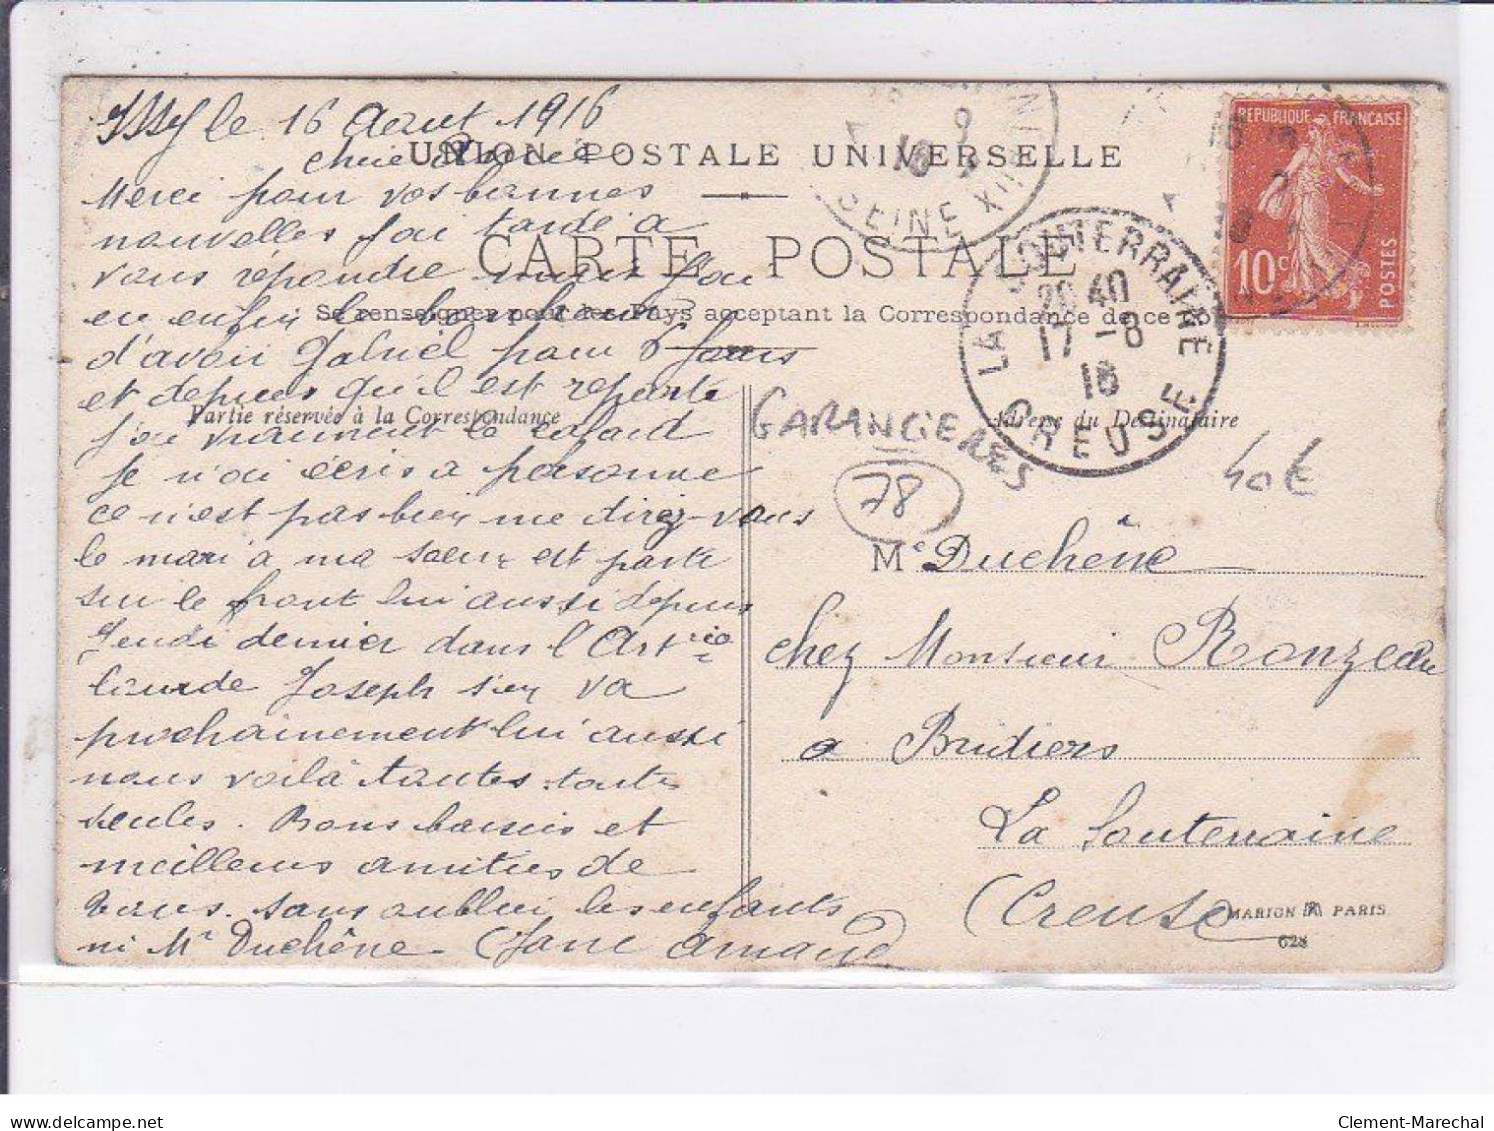 Issy le 16 Aout 1916
UNION POSTALE UNIVERSELLE
chère
Merci pour vos bonnes
nouvelles j'ai tardé a
vous répondre mais j'ai
eu enfin le bonheur
d'avoir Gabriel pour 6 jours
et depuis qu'il est reparti
j'ai vraiment le cafard
je n'ai écris a personne
ce n'est pas bien me direz-vous
le mari a ma sœur est parti
sur le front lui aussi depuis
Jeudi dernier dans l'Artrie
lourde Joseph s'en va
prochainement lui aussi
nous voilà toutes toute
seules. Bons baisers et
meilleures amitiés de
nous. sans oublier les enfants
ni Mr Duchêne. Jane Amand
CARTE POSTALE
Se renseigner pour les Pays acceptant la Correspondance de ce
Partie réservée à la Correspondance
Adresse du Destinataire
GARANCIERES
78
40€
Me Duchêne
chez Monsieur Ronzeau
a Bridiers
La Souterraine
(Creuse)
MARION PARIS
628
REPUBLIQUE FRANÇAISE
10c
POSTES
SEINE
LA SOUTERRAINE
20 40
17 -8
16
CREUSE
Clement-Marechal